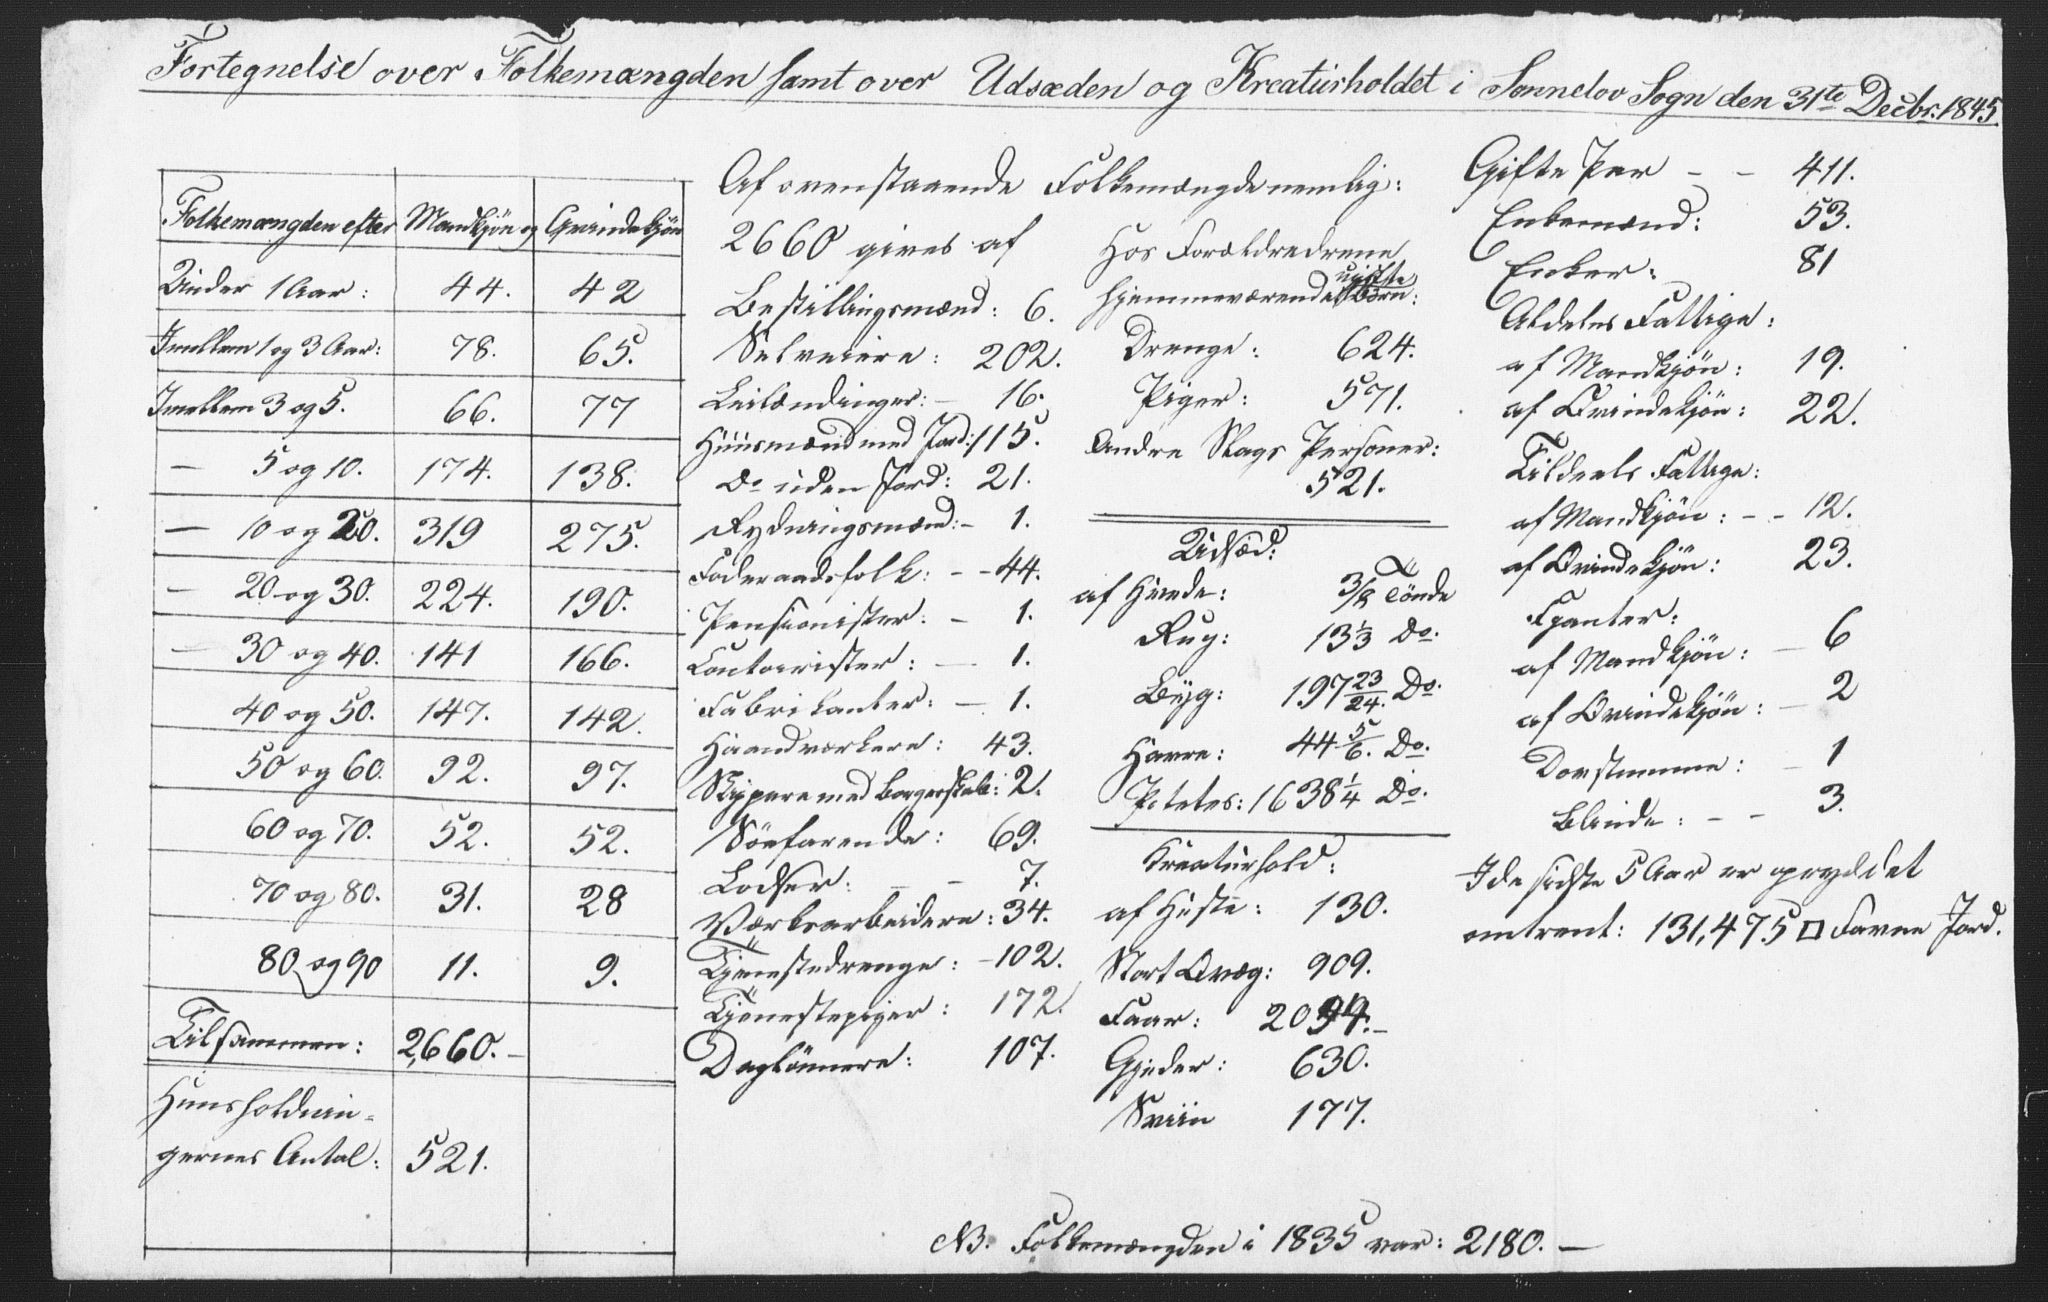 Fortegnelse over Folkemængden samt over Udsæden og Kreaturholdet i Sannelov Sogn den 31te Decbr. 1845.
Folkemængden efter Mandkjön og Qvindekjön
Under 1 Aar: 44. 42
Imellem 1 og 3 Aar: 78. 65.
Imellem 3 og 5. 66. 77
— 5 og 10. 174. 138.
— 10 og 20. 319 275.
— 20 og 30. 224. 190.
— 30 og 40. 141 166.
40 og 50. 147. 142.
50 og 60. 92. 97.
60 og 70. 52. 52.
70 og 80. 31. 28
80 og 90 11. 9.
Tilsammen: 2,660.—
Huusholdnin-
gernes Antal: 521.
Af ovenstaaende Folkemængde nemlig:
2660 gives af
Bestillingsmænd: 6.
Selveiere: 202.
Leilændinger: — 16.
Huusmænd med Jord: 115.
Do uden Jord: 21.
Rydningsmænd: — 1.
Foderaadsfolk: — 44.
Pensionister: — 1.
Contoirister: — 1.
Fabrikanter: — 1.
Haandværkere: 43.
Skipere med Borgerskab: 2.
Söefarende: 69.
Lodser: — — 7.
Værksarbeidere: 34.
Tjenestedrenge: — 102.
Tjenestepiger: 172.
Daglönnere: 107.
Hos Forældredrene
ugifte
hjemmeværende Börn:
Drenge: 624.
Piger: 571.
Andre Slags Personer:
521.
Udsæd:
af Hvede: 3/8 Tönde
Rug: 13 1/3 Do.
Byg: 197 23/24. Do.
Havre: 44 5/6. Do.
Potetes: 1638 1/4 Do.
Kreaturhold:
af Heste: 130.
Stort Qvæg: 909.
Faar: 2094.—
Gjeder: 630.
Sviin 177.
Gifte Par — — 411.
Enkemænd: 53.
Enker: 81
Aldeles Fattige:
af Mandkjön: 19.
af Qvindekjön: 22.
Tildeels Fattige:
af Mandkjön: — — 12.
af Qvindekjön: 23.
Fjanter:
af Mandkjön: — 6
af Qvindekjön: — 2
Dovstumme: — 1
Blinde: — — 3.
I de sidste 5 Aar er opryddet
omtrent: 131,475 □ Favne Jord.
NB. Folkemængden i 1835 var: 2180.—